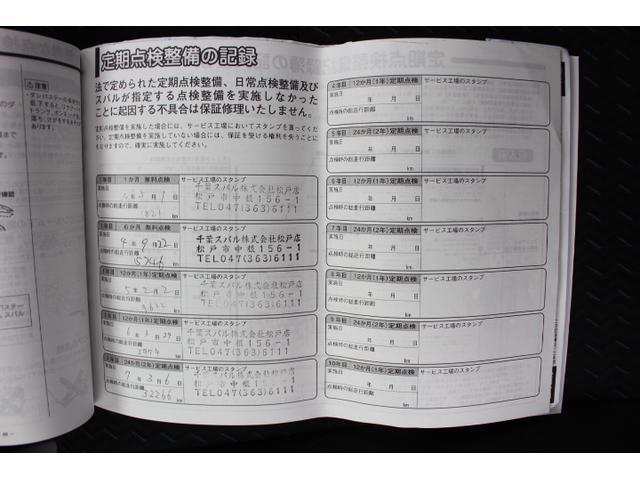 定期点検整備の記録
法で定められた定期点検整備、日常点検整備及び
スバルが指定する点検整備を実施しなかった
ことに起因する不具合は保証修理いたしません。
定期点検整備を実施した場合には、サービス工場においてスタンプを貰ってくだ
さい。定期点検整備を実施していない場合には、保証を受ける権利を失うことに
もなりますので、確実に実施してください。
1か月 無料点検 サービス工場のスタンプ
実施日 年 5月 9日
千葉スバル株式会社松戸店
松戸市中根156-1
TEL047(363)6111
点検時の総走行距離
1821 km
6か月 無料点検 サービス工場のスタンプ
実施日 4年 9月 22日
千葉スバル株式会社松戸店
松戸市中根156-1
TEL047(363)6111
点検時の総走行距離
5746 km
12か月(1年)定期点検 サービス工場のスタンプ
実施日 5年 2月 2日
千葉スバル株式会社松戸店
松戸市中根156-1
TEL047(363)6111
点検時の総走行距離
km
12か月(1年)定期点検 サービス工場のスタンプ
実施日 年 月 29日
千葉スバル株式会社松戸店
松戸市中根156-1
TEL047(363)6111
点検時の総走行距離
km
24か月(2年)定期点検 サービス工場のスタンプ
実施日 7年 3月 6日
千葉スバル株式会社松戸店
松戸市中根156-1
TEL047(363)6111
点検時の総走行距離
32266 km
4年目 12か月(1年)定期点検 サービス工場のスタンプ
実施日
年 月 日
点検時の総走行距離
km
5年目 24か月(2年)定期点検 サービス工場のスタンプ
実施日
年 月 日
点検時の総走行距離
km
6年目 12か月(1年)定期点検 サービス工場のスタンプ
実施日
年 月 日
点検時の総走行距離
km
7年目 24か月(2年)定期点検 サービス工場のスタンプ
実施日
年 月 日
点検時の総走行距離
km
8年目 12か月(1年)定期点検 サービス工場のスタンプ
実施日
年 月 日
点検時の総走行距離
km
9年目 24か月(2年)定期点検 サービス工場のスタンプ
実施日
年 月 日
点検時の総走行距離
km
10年目 12か月(1年)定期点検 サービス工場のスタンプ
実施日
年 月 日
点検時の総走行距離
km